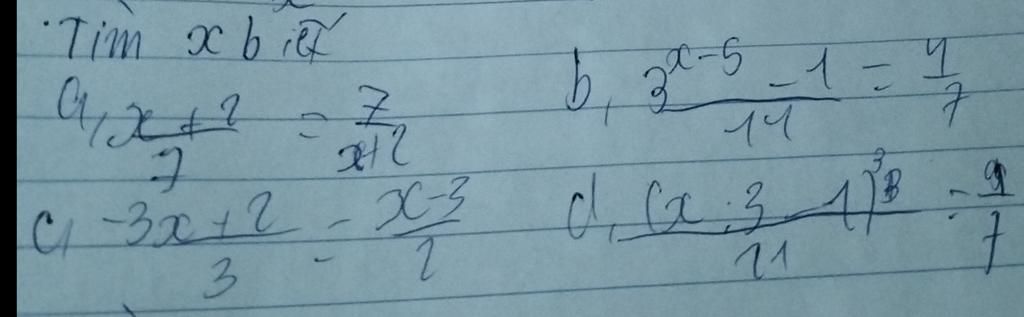 Tìm x biết
a, (x + 2)/7 = 7/(x+2)
b, (3^(x-5) - 1)/14 = 4/7
c, (-3x + 2)/3 = (x-3)/2
d, (x . 3 - 1)^3/21 = 9/7